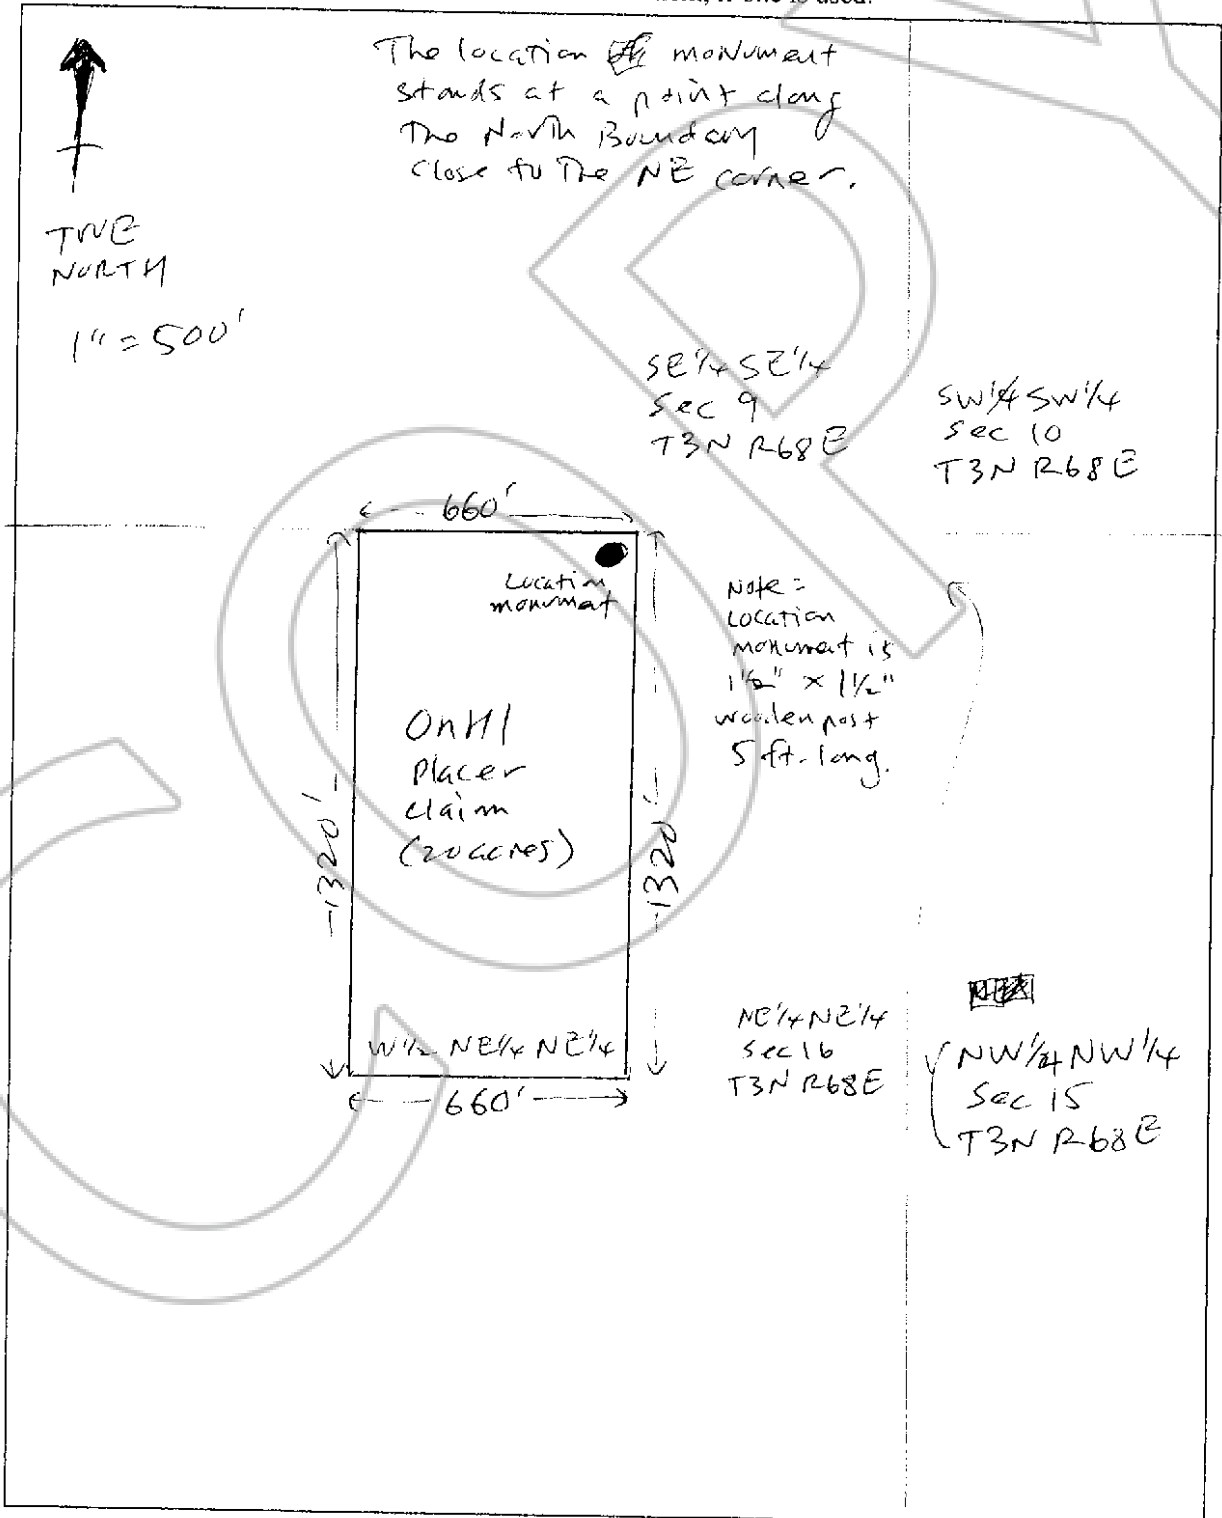 is used.
The location monument
stands at a point along
The North Boundary
close to The NE corner.
TRUE
NORTH
1" = 500'
SE1/4 SE1/4
Sec 9
T3N R68E
SW1/4 SW1/4
Sec 10
T3N R68E
660'
Location
monument
Note =
Location
monument is
1 1/2" x 1 1/2"
wooden post
5 ft. long.
OnH1
Placer
claim
(20 acres)
1320'
1320'
W1/2 NE1/4 NE1/4
660'
NE1/4 NE1/4
Sec 16
T3N R68E
NW1/4 NW1/4
Sec 15
T3N R68E
COPY